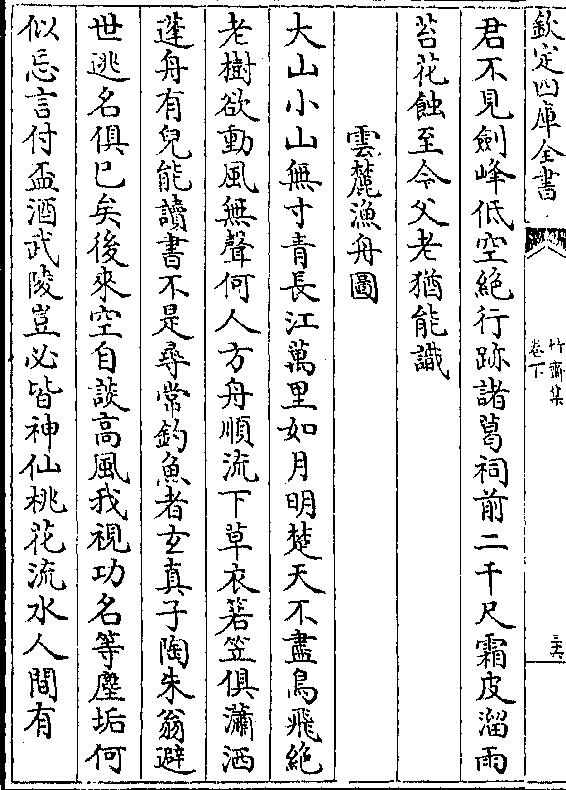 欽定四庫全書
竹齋集
卷下
君不見劍峰低空絶行跡諸葛祠前二千尺霜皮溜雨
苔花蝕至今父老猶能識
雲麓漁舟圖
大山小山無寸青長江萬里如月明楚天不盡鳥飛絶
老樹欲動風無聲何人方舟順流下草衣箬笠俱瀟洒
蓬舟有兒能讀書不是尋常釣魚者玄真子陶朱翁避
世逃名俱已矣後來空自談高風我視功名等塵垢何
似忘言付盃酒武陵豈必皆神仙桃花流水人間有